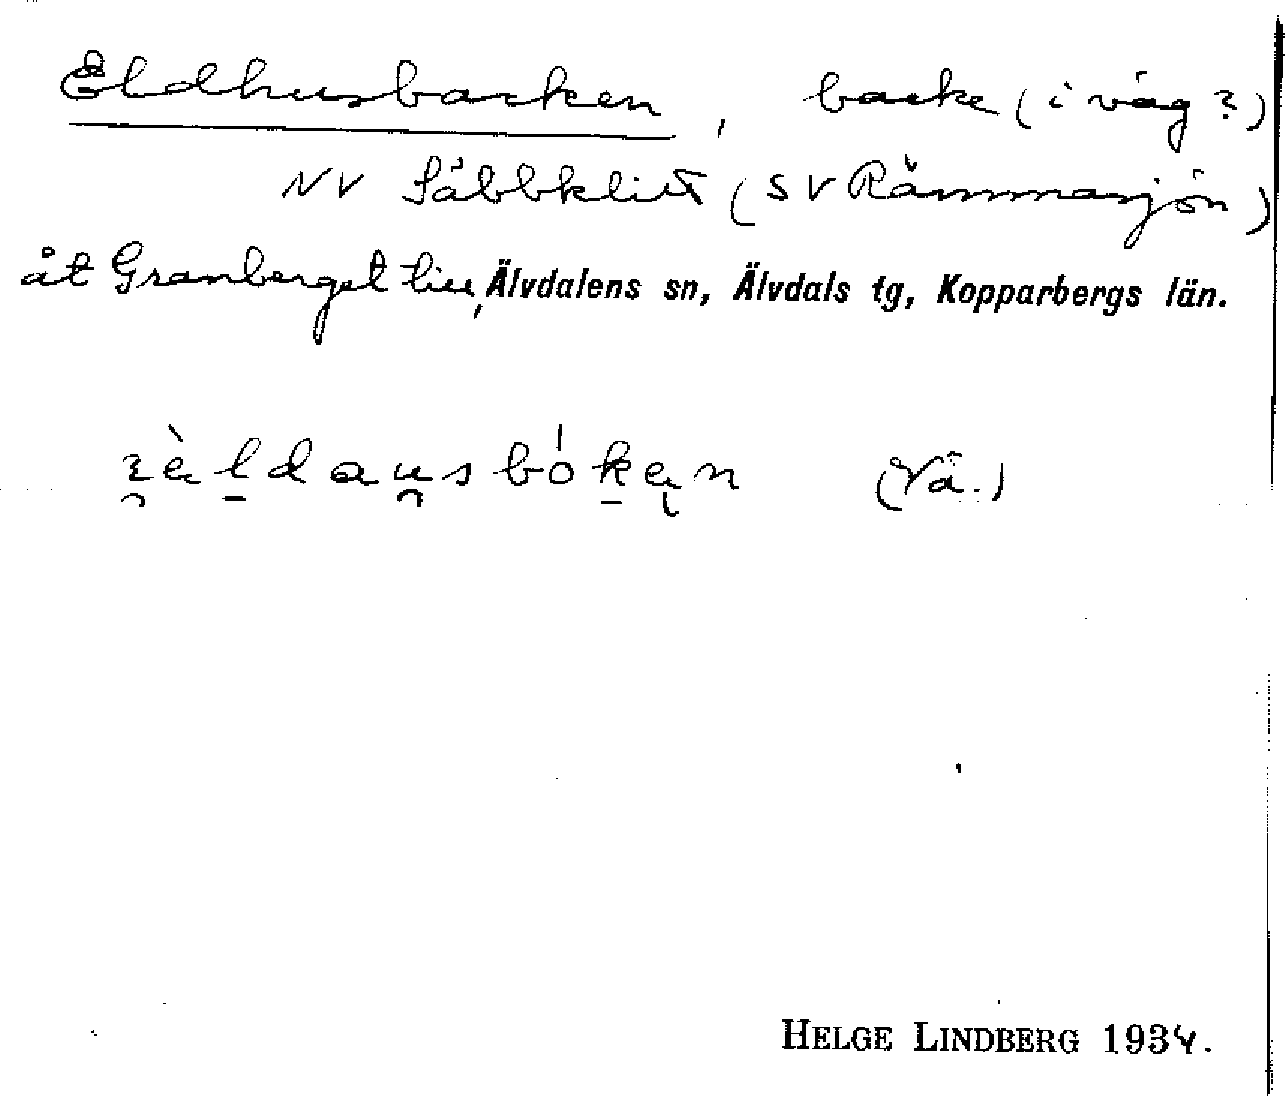 Eldhusbacken, backe (i väg?)
NV Säbbklitt (SV Rämmasjön)
åt Granberget till, Älvdalens sn, Älvdals tg, Kopparbergs län.
(Vå.)
HELGE LINDBERG 1934.